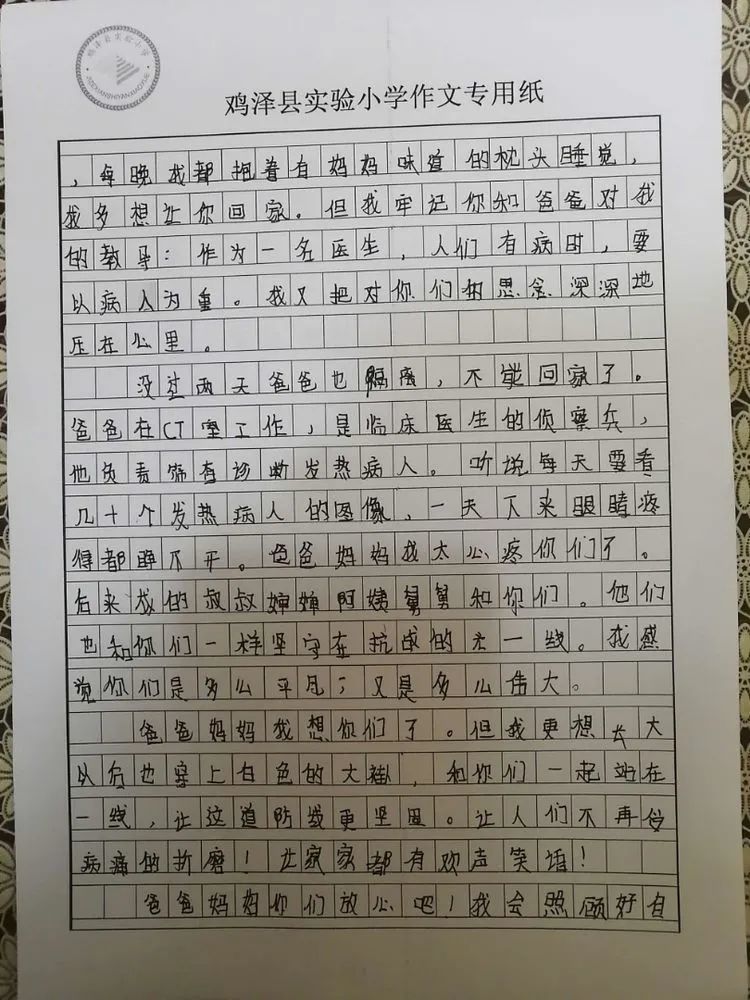 鸡泽县实验小学
JIZEXIANSHIYANXIAOXUE
鸡泽县实验小学作文专用纸
，每晚我都抱着有妈妈味道的枕头睡觉，
我多想让你回家。但我牢记你和爸爸对我
的教导：作为一名医生，人们有病时，要
以病人为重。我又把对你们的思念深深地
压在心里。
没过两天爸爸也隔离，不能回家了。
爸爸在CT室工作，是临床医生的侦察兵，
他负责筛查诊断发热病人。听说每天要看
几十个发热病人的图像，一天下来眼睛疼
得都睁不开。爸爸妈妈我太心疼你们了。
后来我的叔叔婶婶阿姨舅舅和你们。他们
也和你们一样坚守在抗战的第一线。我感
觉你们是多么平凡；又是多么伟大。
爸爸妈妈我想你们了。但我更想长大
以后也穿上白色的大褂，和你们一起站在
一线，让这道防线更坚固。让人们不再受
病痛的折磨！让家家都有欢声笑话！
爸爸妈妈你们放心吧！我会照顾好自